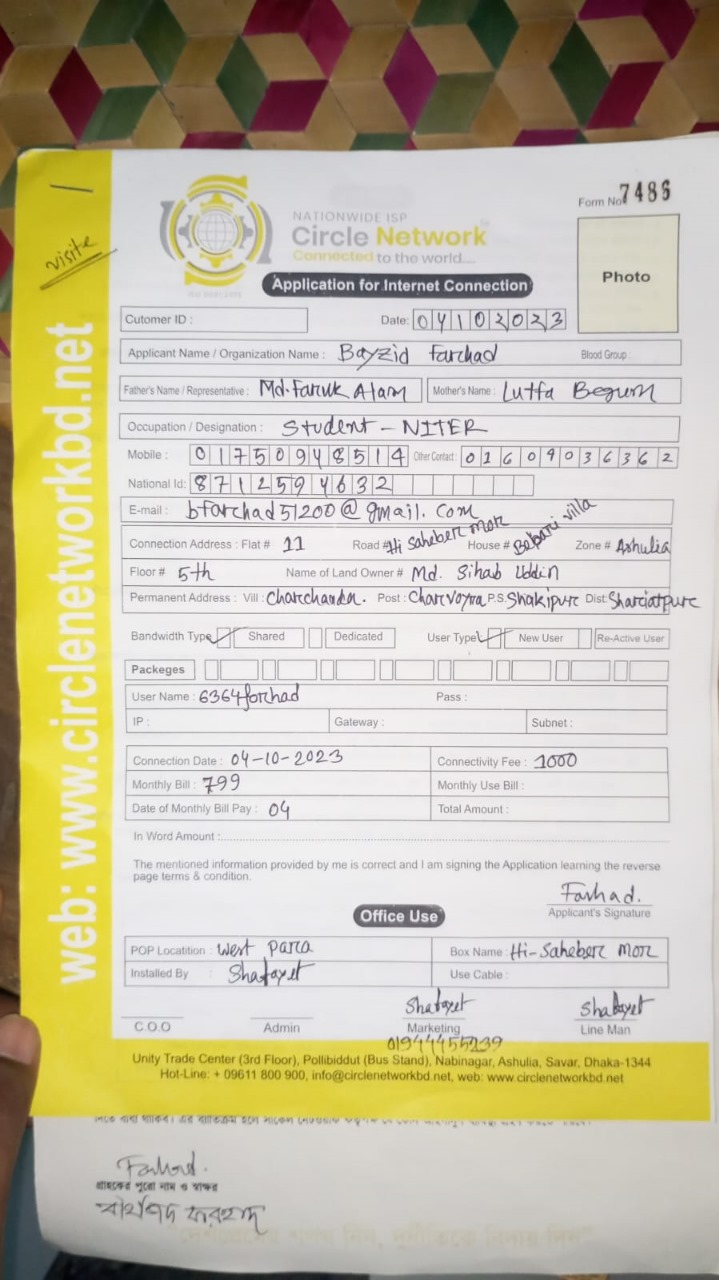 Form No 7486
visite
NATIONWIDE ISP
Circle Network
Connected to the world....
Application for Internet Connection
Photo
Cutomer ID :
Date: 04102023
Applicant Name / Organization Name : Bayzid Farchad Blood Group :
Father's Name / Representative : Md. Faruk Alam Mother's Name : Lutfa Begum
Occupation / Designation : Student - NITER
Mobile : 01750948514 Other Contact : 01609036362
National Id: 8712594632
E-mail : bfarchad51200@gmail.com
Connection Address : Flat # 11 Road # Hi Saheber mor House # Bepari villa Zone # Ashulia
Floor # 5th Name of Land Owner # Md. Sihab Uddin
Permanent Address : Vill : Charchanda. Post : Charvoyra P.S. Shakipur Dist: Shariatpur
Bandwidth Type Shared Dedicated User Type New User Re-Active User
Packeges
User Name : 6364forhad Pass :
IP : Gateway : Subnet :
Connection Date : 04-10-2023 Connectivity Fee : 1000
Monthly Bill : 799 Monthly Use Bill :
Date of Monthly Bill Pay : 04 Total Amount :
In Word Amount :
The mentioned information provided by me is correct and I am signing the Application learning the reverse
page terms & condition.
Farhad.
Applicant's Signature
Office Use
POP Locatition : West para Box Name : Hi-Saheber mor
Installed By : Shafayet Use Cable :
Shafayet Shafayet
C.O.O Admin Marketing Line Man
01944455239
Unity Trade Center (3rd Floor), Pollibiddut (Bus Stand), Nabinagar, Ashulia, Savar, Dhaka-1344
Hot-Line: + 09611 800 900, info@circlenetworkbd.net, web: www.circlenetworkbd.net
web: www.circlenetworkbd.net
Farhad.
গ্রাহকের পুরো নাম ও স্বাক্ষর
বায়জিদ ফরহাদ